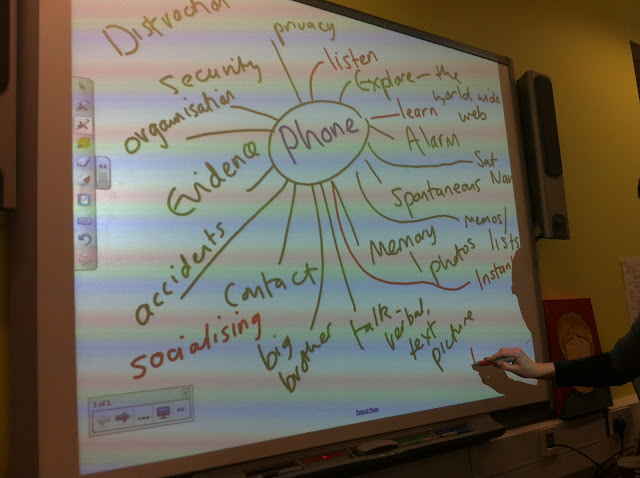 Distraction
privacy
listen
Explore - the
world wide
web
learn
Security
organisation
Phone
Alarm
Evidence
Sat
Nav
Spontaneous
memos/
lists
accidents
Memory
photos
Contact
Instant
socialising
big
brother
talk -
verbal,
text
picture
1 of 1